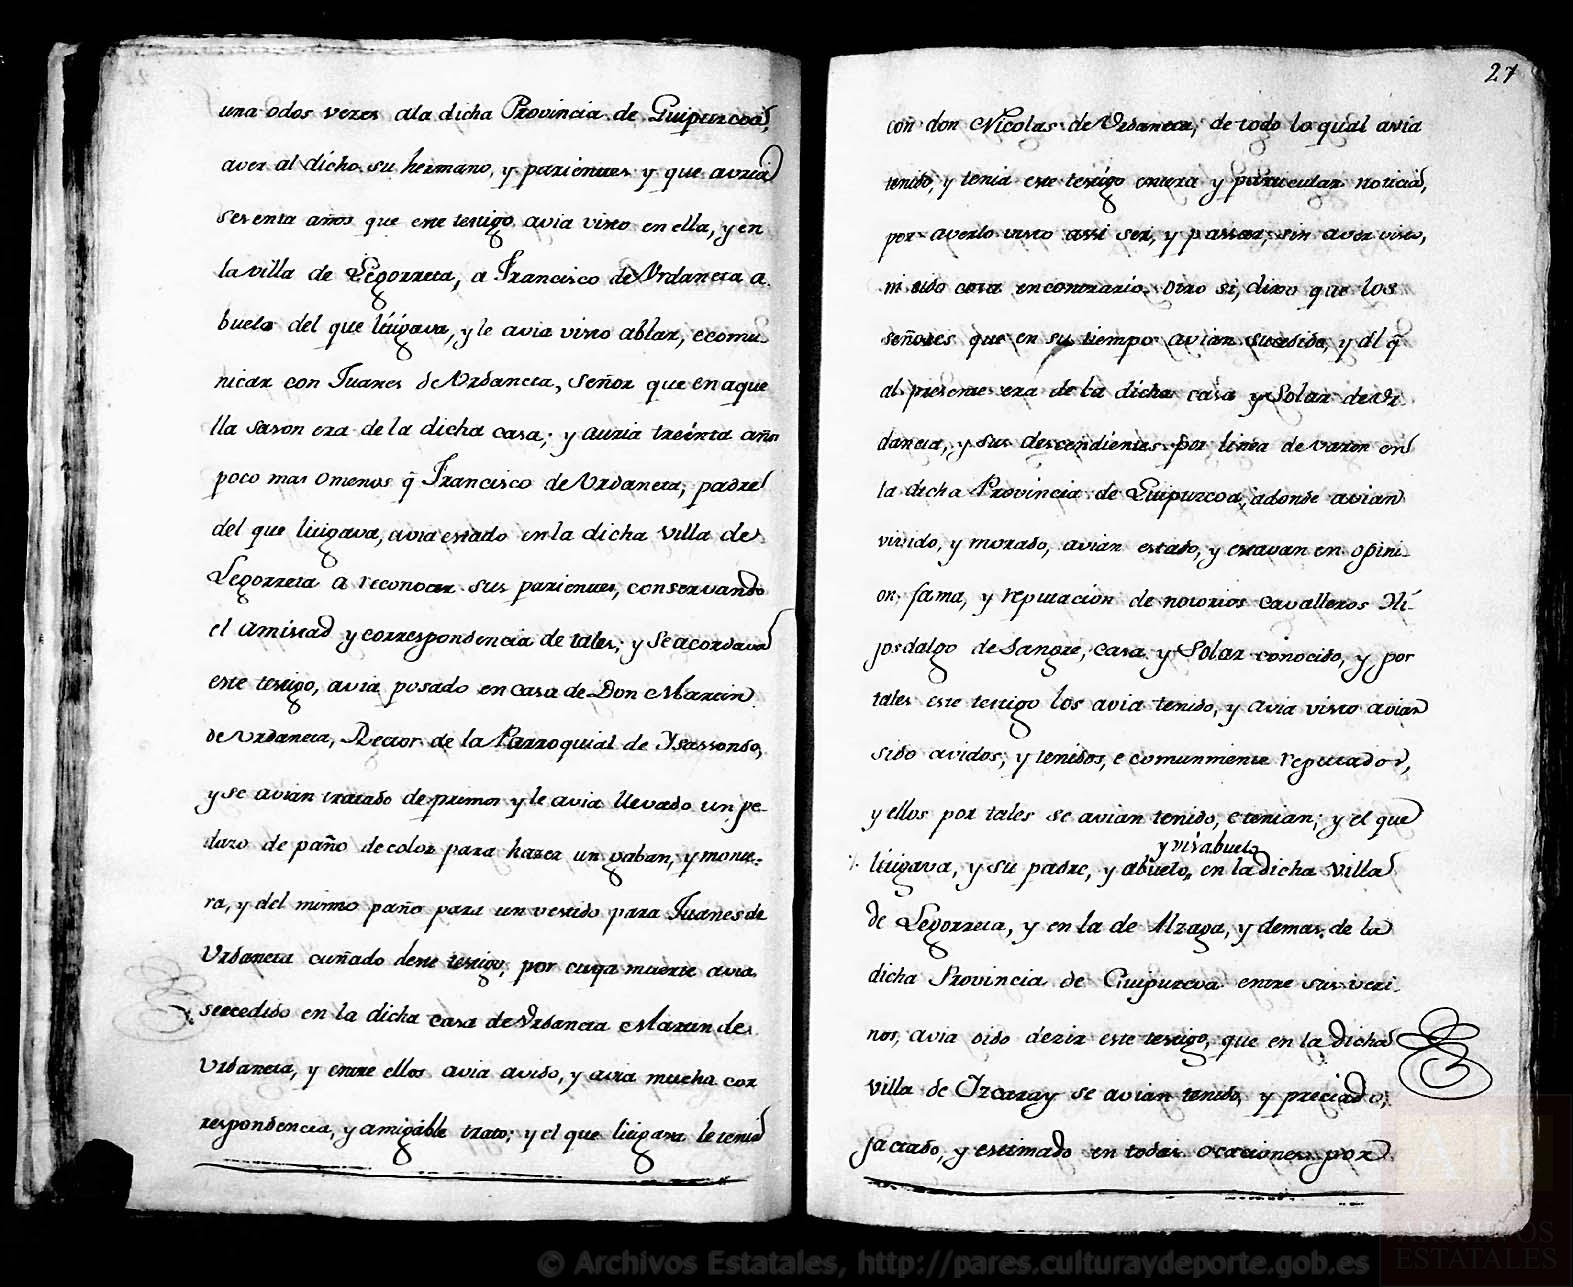 una o dos vezes ala dicha Provincia de Guipuzcoa,
aver al dicho su hermano, y parientes y que avria
sesenta años que este testigo avia visto en ella, y en
la villa de Legorreta, a Francisco de Urdaneta a
buelo del que litigava, y le avia visto ablar, e comu-
nicar con Juanes de Urdaneta, Señor que en aque
lla sason era de la dicha casa; y auria treinta años
poco mas o menos q̃ Francisco de Urdaneta, padre
del que litigava, avia estado en la dicha villa de
Legorreta a reconocer sus parientes, conservando
el amistad y correspondencia de tales; y se acordava
este testigo, avia posado en casa de Don Martin
de Urdaneta, Rector de la Parroquial de Ysassondo,
y se avian tratado de primos y le avia llevado un pe-
dazo de paño de color para hazer un gaban, y monte-
ra, y del mismo paño para un vestido para Juanes de
Urdaneta cuñado deste testigo, por cuya muerte avia
subcedido en la dicha casa de Urdaneta Martin de
Urdaneta, y entre ellos avia avido, y avia mucha cor
respondencia, y amigable trato; y el que litigava le tenia
27
con don Nicolas de Urdaneta; de todo lo qual avia
tenido, y tenia este testigo entera y particular noticia,
por averlo visto assi ser, y passar, sin aver visto,
ni oido cosa en contrario. Otro si, dixo que los
señores que en su tiempo avian sucedido, y al q̃
al presente era de la dicha casa y Solar de Ur
daneta, y sus descendientes por linea de varon en
la dicha Provincia de Guipuzcoa, adonde avian
vivido, y morado, avian estado, y estavan en opini-
on, fama, y reputacion de notorios cavalleros Hi-
josdalgo de Sangre, casa y Solar conocido, y por
tales este testigo los avia tenido, y avia visto avian
sido avidos, y tenidos, e comunmente reputados,
y ellos por tales se avian tenido, e tenian; y el que
y visabuelo
litigava, y su padre, y abuelo, en la dicha villa
de Legorreta, y en la de Alzaga, y demas de la
dicha Provincia de Guipuzcoa entre sus vezi-
nos, avia oido dezir este testigo, que en la dicha
villa de Ezcaray se avian tenido, y preciado,
jactado, y estimado en todas ocaciones por
© Archivos Estatales, http://pares.culturaydeporte.gob.es
ARCHIVOS
ESTATALES